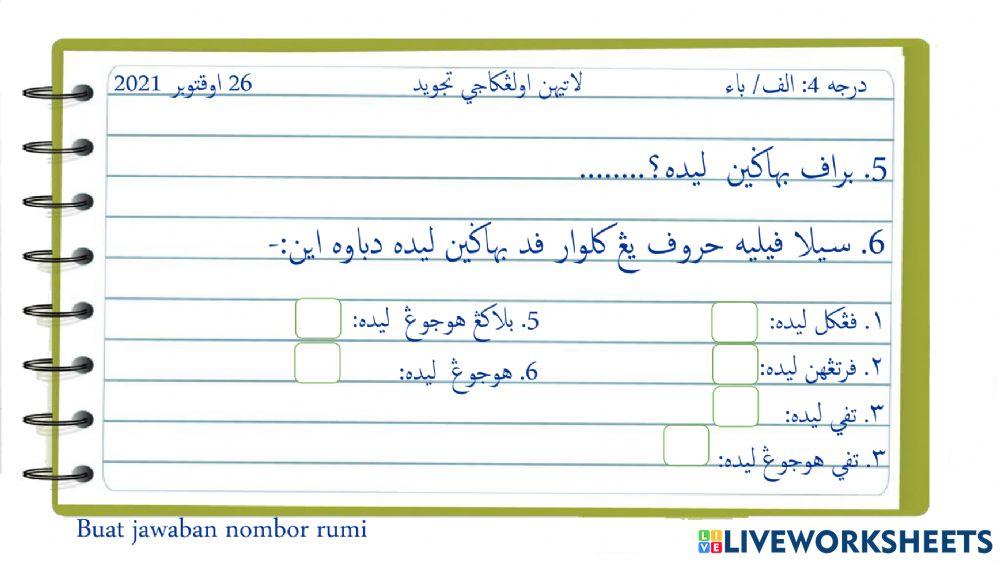 درجه 4: الف/ باء لاتيهن اولڠکاجي تجويد 26 اوقتوبر 2021
5. براف بهاݢين ليده؟........
6. سيلا ڤيليه حروف يڠ کلوار ڤد بهاݢين ليده دباوه اين:-
١. ڤڠکل ليده: 5. بلاکڠ هوجوڠ ليده:
٢. ڤرتڠهن ليده: 6. هوجوڠ ليده:
٣. تڤي ليده:
٣. تڤي هوجوڠ ليده:
Buat jawaban nombor rumi
LIVE LIVEWORKSHEETS